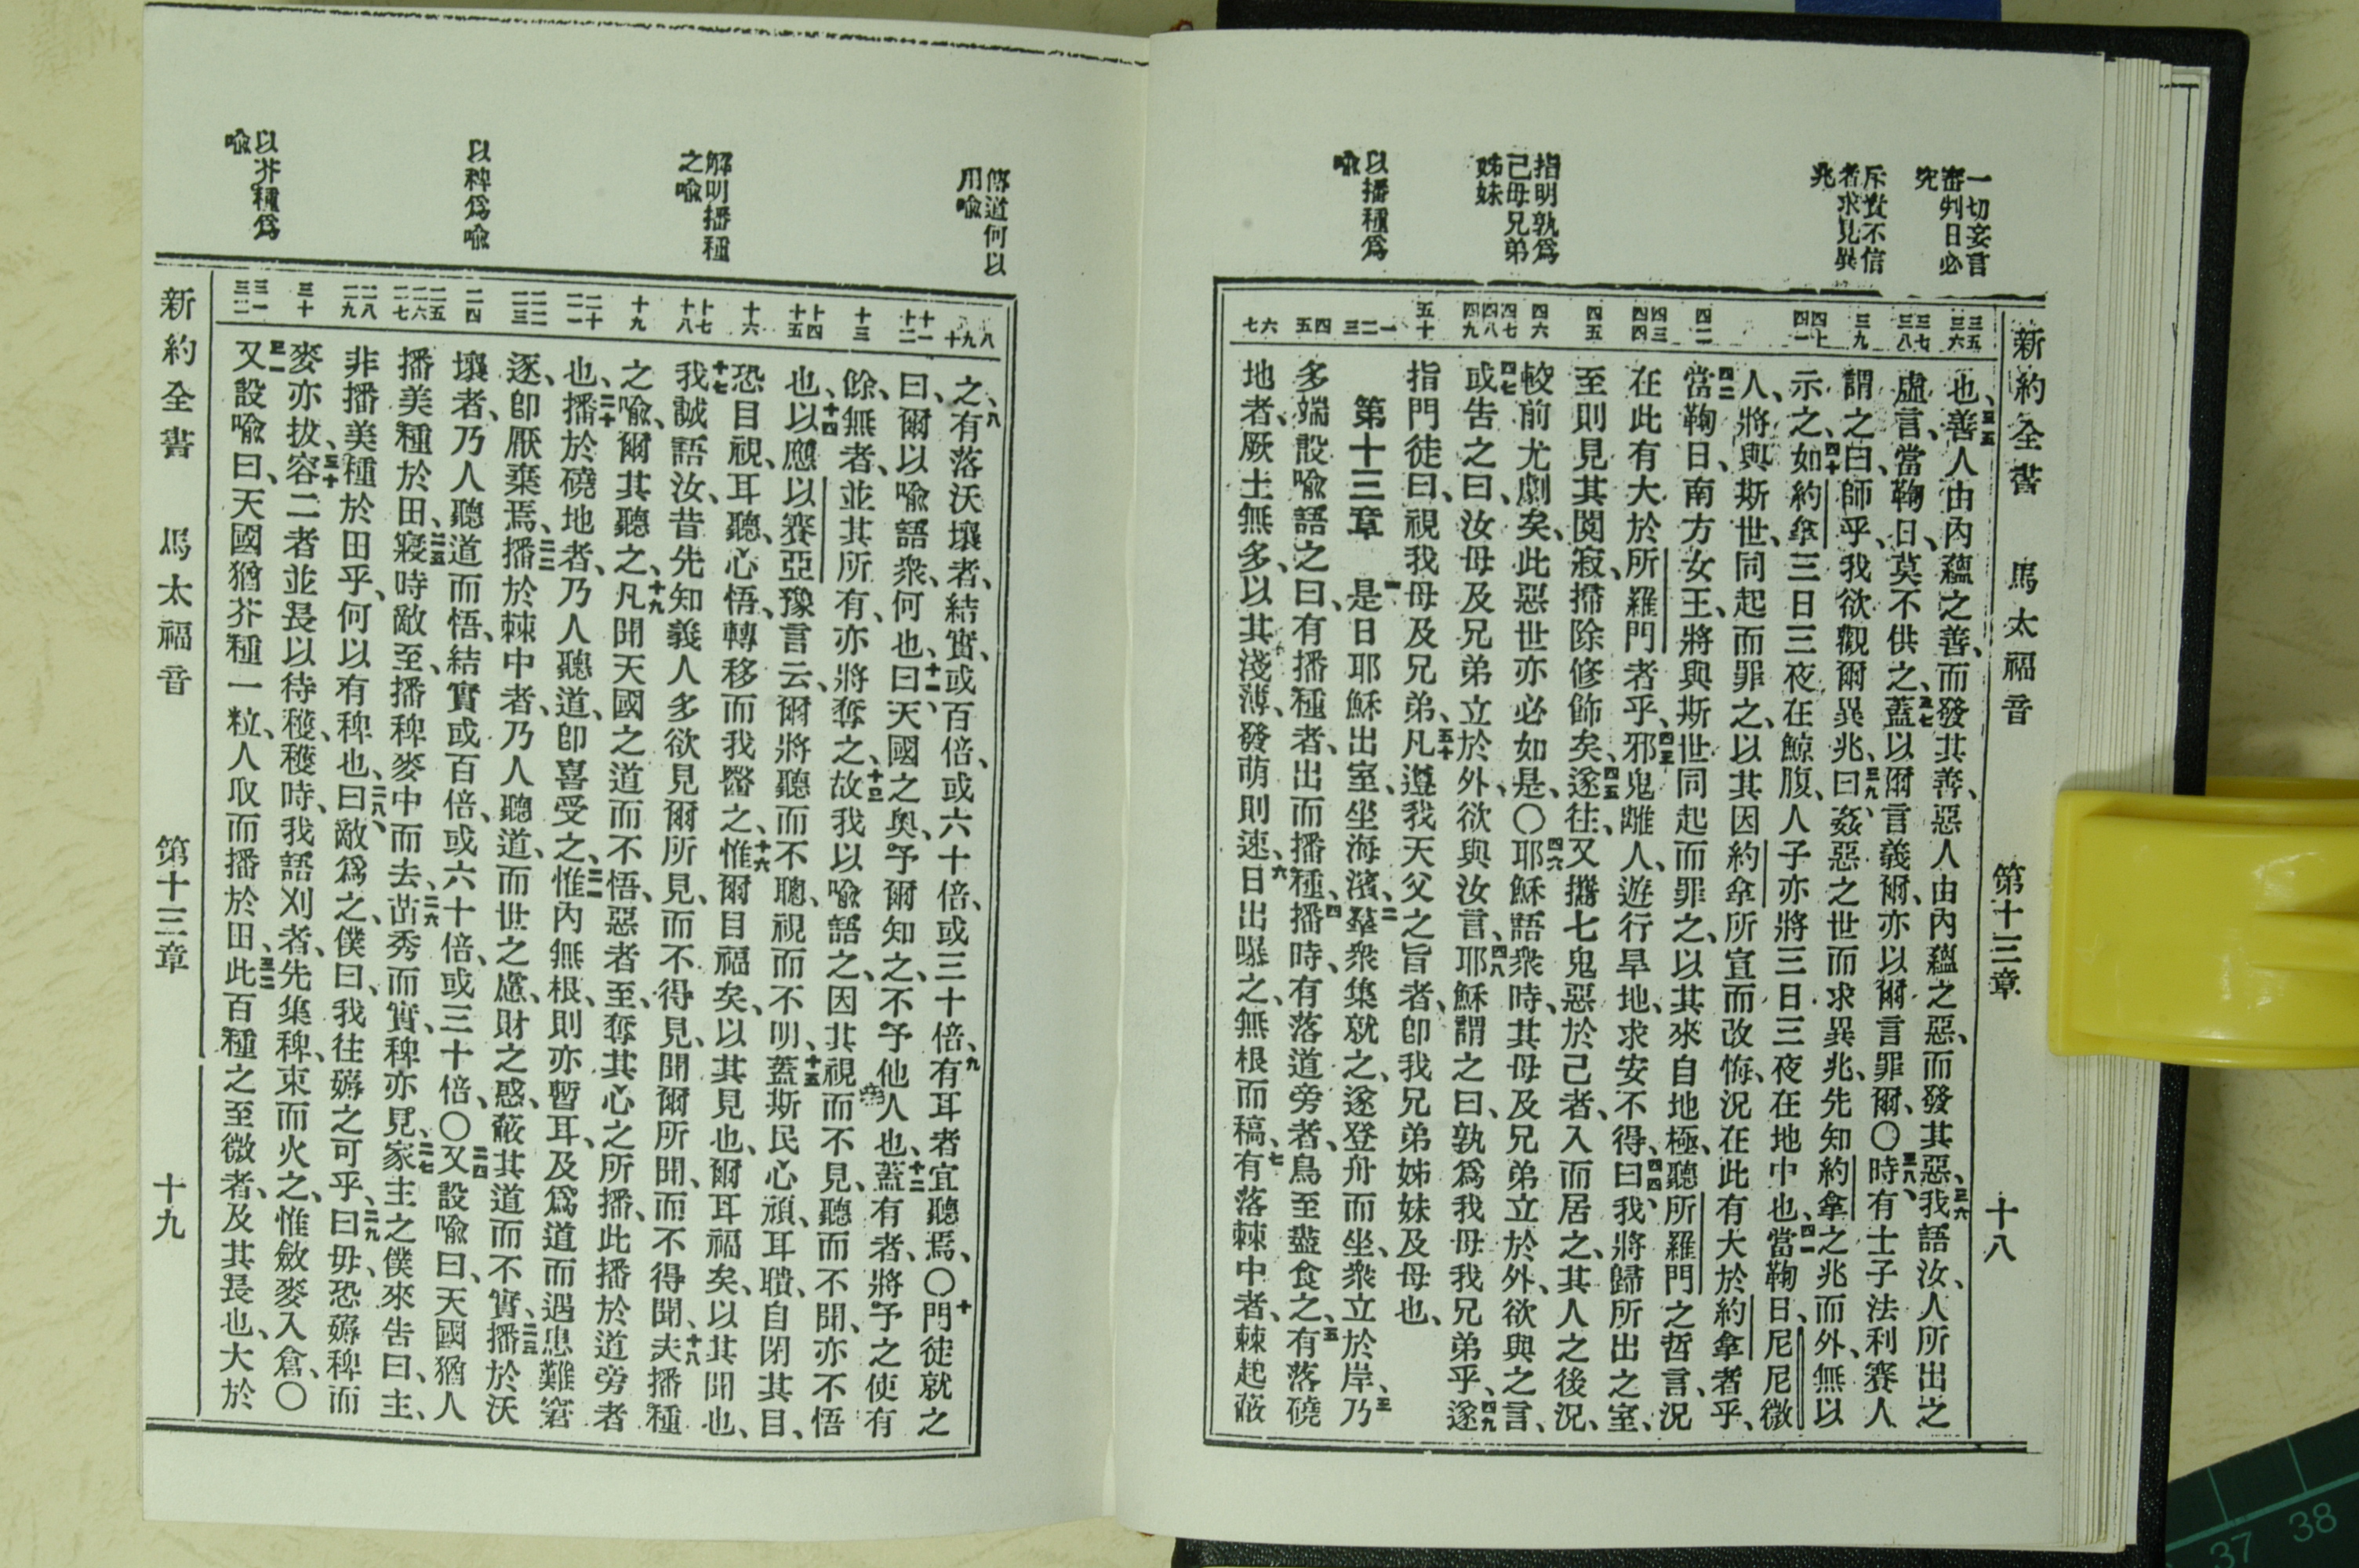 新約全書 馬太福音 第十三章 十八
一切妄言
審判日必
究
斥責不信
者求見異
兆
指明孰爲
己母兄弟
姊妹
以播種爲
喩
三五 三六
三七 三八
三九
四十 四一
四二
四三 四四
四五
四六
四七 四八 四九
五十
一 二 三
四 五
六 七
也、三五善人由內蘊之善、而發其善、惡人由內蘊之惡、而發其惡、三六我語汝、人所出之
虛言、當鞫日、莫不供之、三七蓋以爾言義爾、亦以爾言罪爾、〇三八時有士子法利賽人
謂之曰、師乎、我欲觀爾異兆、三九曰、姦惡之世而求異兆、先知約拿之兆而外、無以
示之、四十如約拿三日三夜在鯨腹、人子亦將三日三夜在地中也、四一當鞫日、尼尼微
人、將與斯世、同起而罪之、以其因約拿所宣而改悔、況在此有大於約拿者乎、
四二當鞫日、南方女王、將與斯世同起而罪之、以其來自地極、聽所羅門之哲言、況
在此有大於所羅門者乎、四三邪鬼離人、遊行旱地、求安不得、四四曰、我將歸所出之室、
至則見其閴寂、掃除修飾矣、四五遂往、又攜七鬼惡於己者、入而居之、其人之後況、
較前尤劇矣、此惡世亦必如是、〇四六耶穌語衆時、其母及兄弟立於外、欲與之言、
四七或告之曰、汝母及兄弟立於外、欲與汝言、四八耶穌謂之曰、孰爲我母我兄弟乎、四九遂
指門徒曰、視我母及兄弟、五十凡遵我天父之旨者、卽我兄弟姊妹及母也、
第十三章 一是日耶穌出室、坐海濱、二羣衆集就之、遂登舟而坐、衆立於岸、三乃
多端設喩語之曰、有播種者、出而播種、四播時、有落道旁者、鳥至盡食之、五有落磽
地者、厥土無多、以其淺薄、發萌則速、六日出曝之、無根而稿、七有落棘中者、棘起蔽
傳道何以
用喩
解明播種
之喩
以稗爲喩
以芥種爲
喩
八 九 十
十一 十二
十三
十四 十五
十六
十七 十八
十九
二十 二一
二二 二三
二四
二五 二六 二七
二八 二九
三十
三一 三二
之、八有落沃壤者、結實、或百倍、或六十倍、或三十倍、九有耳者宜聽焉、〇十門徒就之
曰、爾以喩語衆、何也、十一曰、天國之奧、予爾知之、不予他人也、十二蓋有者、將予之使有
餘、無者、並其所有、亦將奪之、十三故我以喩語之、因其視而不見、聽而不聞、亦不悟
也、十四以應以賽亞豫言云、爾將聽而不聰、視而不明、十五蓋斯民心頑、耳聵、自閉其目、
恐目視、耳聽、心悟、轉移而我醫之、十六惟爾目福矣、以其見也、爾耳福矣、以其聞也、
十七我誠語汝、昔先知義人多欲見爾所見、而不得見、聞爾所聞、而不得聞、十八夫播種
之喩、爾其聽之、十九凡聞天國之道而不悟、惡者至、奪其心之所播、此播於道旁者
也、二十播於磽地者、乃人聽道、卽喜受之、二一惟內無根、則亦暫耳、及爲道而遇患難窘
逐、卽厭棄焉、二二播於棘中者、乃人聽道、而世之慮、財之惑、蔽其道而不實、二三播於沃
壤者、乃人聽道而悟、結實或百倍、或六十倍、或三十倍、〇二四又設喩曰、天國猶人
播美種於田、二五寢時敵至、播稗麥中而去、二六苗秀而實、稗亦見、二七家主之僕來告曰、主、
非播美種於田乎、何以有稗也、二八曰、敵爲之、僕曰、我往薅之可乎、二九曰、毋、恐薅稗而
麥亦拔、三十容二者並長以待穫、穫時、我語刈者、先集稗、束而火之、惟斂麥入倉、〇
三一又設喩曰、天國猶芥種一粒、人取而播於田、三二此百種之至微者、及其長也、大於
新約全書 馬太福音 第十三章 十九
37 38